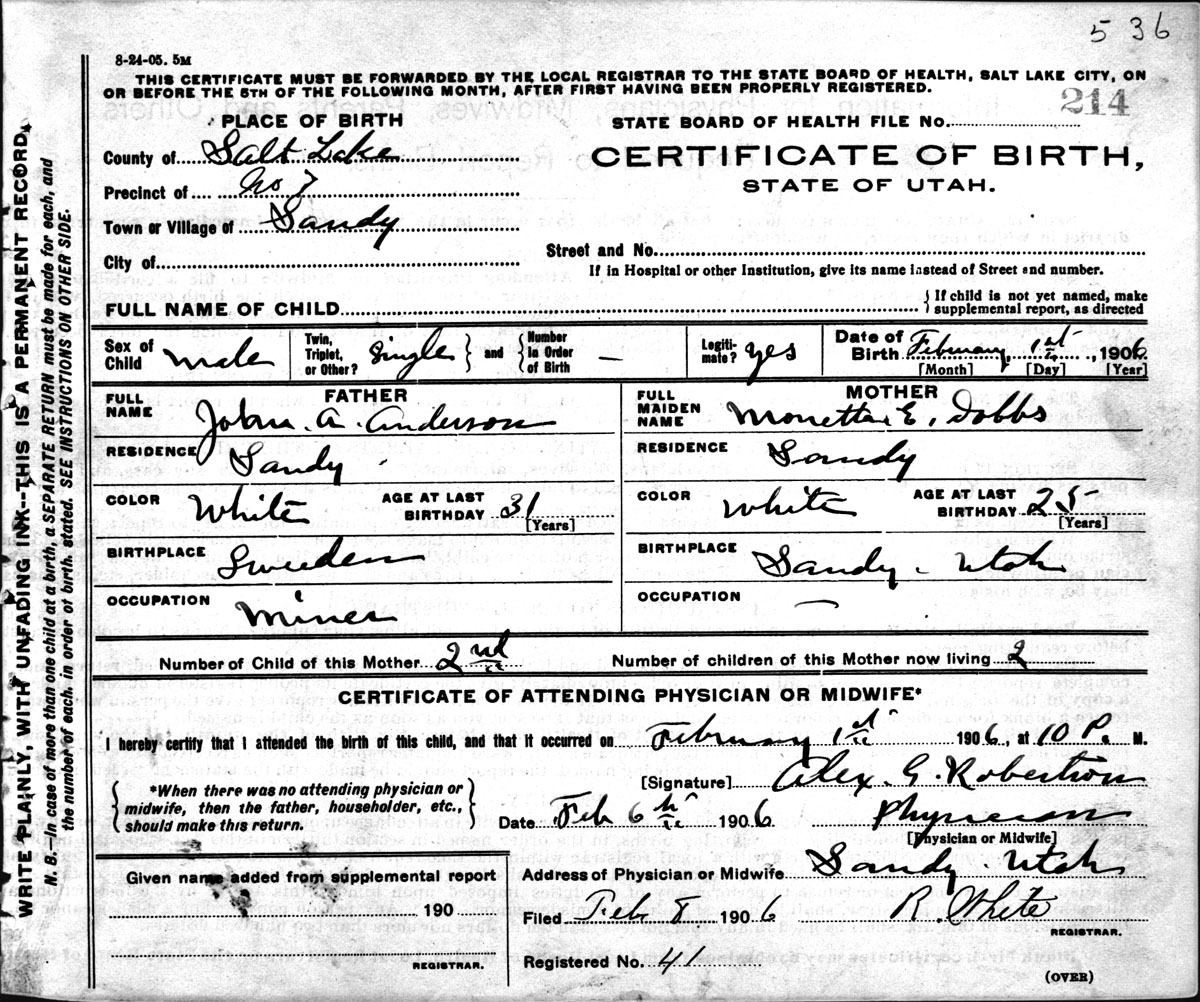 5 36
8-24-05. 5M
THIS CERTIFICATE MUST BE FORWARDED BY THE LOCAL REGISTRAR TO THE STATE BOARD OF HEALTH, SALT LAKE CITY, ON
OR BEFORE THE 5TH OF THE FOLLOWING MONTH, AFTER FIRST HAVING BEEN PROPERLY REGISTERED.
214
PLACE OF BIRTH
STATE BOARD OF HEALTH FILE No.
County of Salt Lake
CERTIFICATE OF BIRTH,
STATE OF UTAH.
Precinct of No 7
Town or Village of Sandy
Street and No.
City of
If in Hospital or other Institution, give its name instead of Street and number.
FULL NAME OF CHILD
If child is not yet named, make
supplemental report, as directed
Sex of Child male
Twin, Triplet, or Other? Single and Number in Order of Birth —
Legitimate? yes
Date of Birth February 1st, 1906
[Month] [Day] [Year]
FATHER
FULL NAME John. A. Anderson
RESIDENCE Sandy
COLOR White AGE AT LAST BIRTHDAY 31
[Years]
BIRTHPLACE Sweeden
OCCUPATION Miner
MOTHER
FULL MAIDEN NAME Monetta E. Dobbs
RESIDENCE Sandy
COLOR White AGE AT LAST BIRTHDAY 25
[Years]
BIRTHPLACE Sandy - Utah
OCCUPATION —
Number of Child of this Mother 2nd Number of children of this Mother now living 2
CERTIFICATE OF ATTENDING PHYSICIAN OR MIDWIFE*
I hereby certify that I attended the birth of this child, and that it occurred on February 1st 1906, at 10 P. M.
*When there was no attending physician or
midwife, then the father, householder, etc.,
should make this return.
[Signature] Alex. G. Robertson
Date Feb 6th 1906 Physician
[Physician or Midwife]
Given name added from supplemental report
Address of Physician or Midwife Sandy - Utah
190
Filed Feb 8 1906 R. White
REGISTRAR.
REGISTRAR.
Registered No. 41
(OVER)
WRITE PLAINLY, WITH UNFADING INK--THIS IS A PERMANENT RECORD.
N. B.—In case of more than one child at a birth, a SEPARATE RETURN must be made for each, and
the number of each, in order of birth, stated. SEE INSTRUCTIONS ON OTHER SIDE.